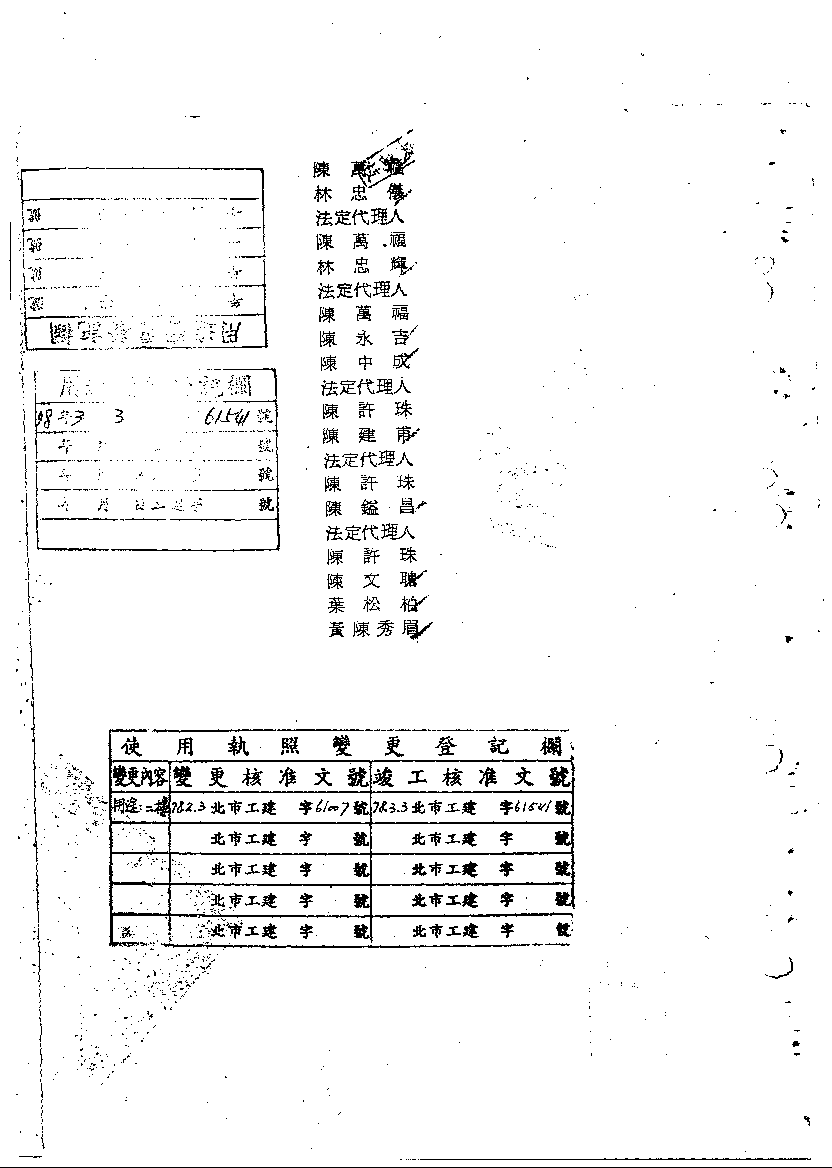 陳萬福
林忠儀
法定代理人
陳萬福
林忠輝
法定代理人
陳萬福
陳永吉
陳中成
法定代理人
陳許珠
陳建甫
法定代理人
陳許珠
陳鎰昌
法定代理人
陳許珠
陳文聰
葉松柏
黃陳秀眉
號
號
號
號
用 記欄
用 記欄
年3 3 61541號
年 號
年 號
年 月 日工建字 號
使用執照變更登記欄
變更內容 變更核准文號 竣工核准文號
用途:二樓 78.2.3北市工建 字61007號 78.3.3北市工建 字61541號
北市工建 字 號 北市工建 字 號
北市工建 字 號 北市工建 字 號
北市工建 字 號 北市工建 字 號
北市工建 字 號 北市工建 字 號